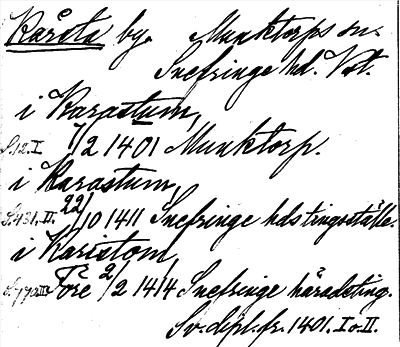 Kårsta by. Munktorps sn.
Snefringe hd. Vstl.
i Karastum,
S.12.I 7/2 1401 Munktorp.
i Karastum,
S.431.II. 22/10 1411 Snefringe hds tingsställe.
i Karistom,
Före 2/2 1414 Snefringe häradsting.
Sv. dipl. fr. 1401, I o. II.